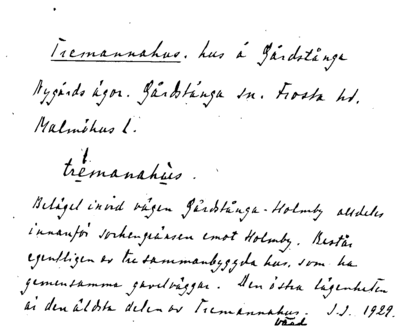 Tremannahus. hus å Gårdstånga
Nygårds ägor. Gårdstånga sn. Frosta hd.
Malmöhus l.
trémanahùs.
Beläget invid vägen Gårdstånga-Holmby alldeles
innanför sockengränsen emot Holmby. Består
egentligen av tre sammanbyggda hus, som ha
gemensamma gavelväggar. Den östra lägenheten
är den äldsta delen av Tremannahus. 1929.